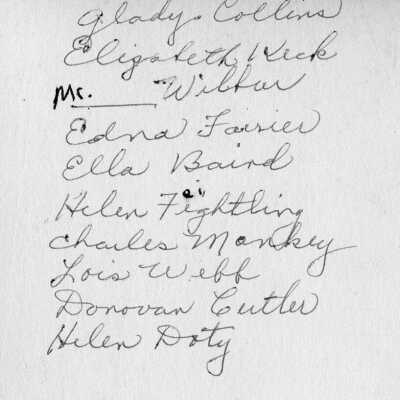 Glady. Collins
Elizabeth Keck
Mr. ____ Wilbur
Edna Farrier
Ella Baird
Helen Feightling
Charles Monkey
Lois Webb
Donovan Cutler
Helen Doty